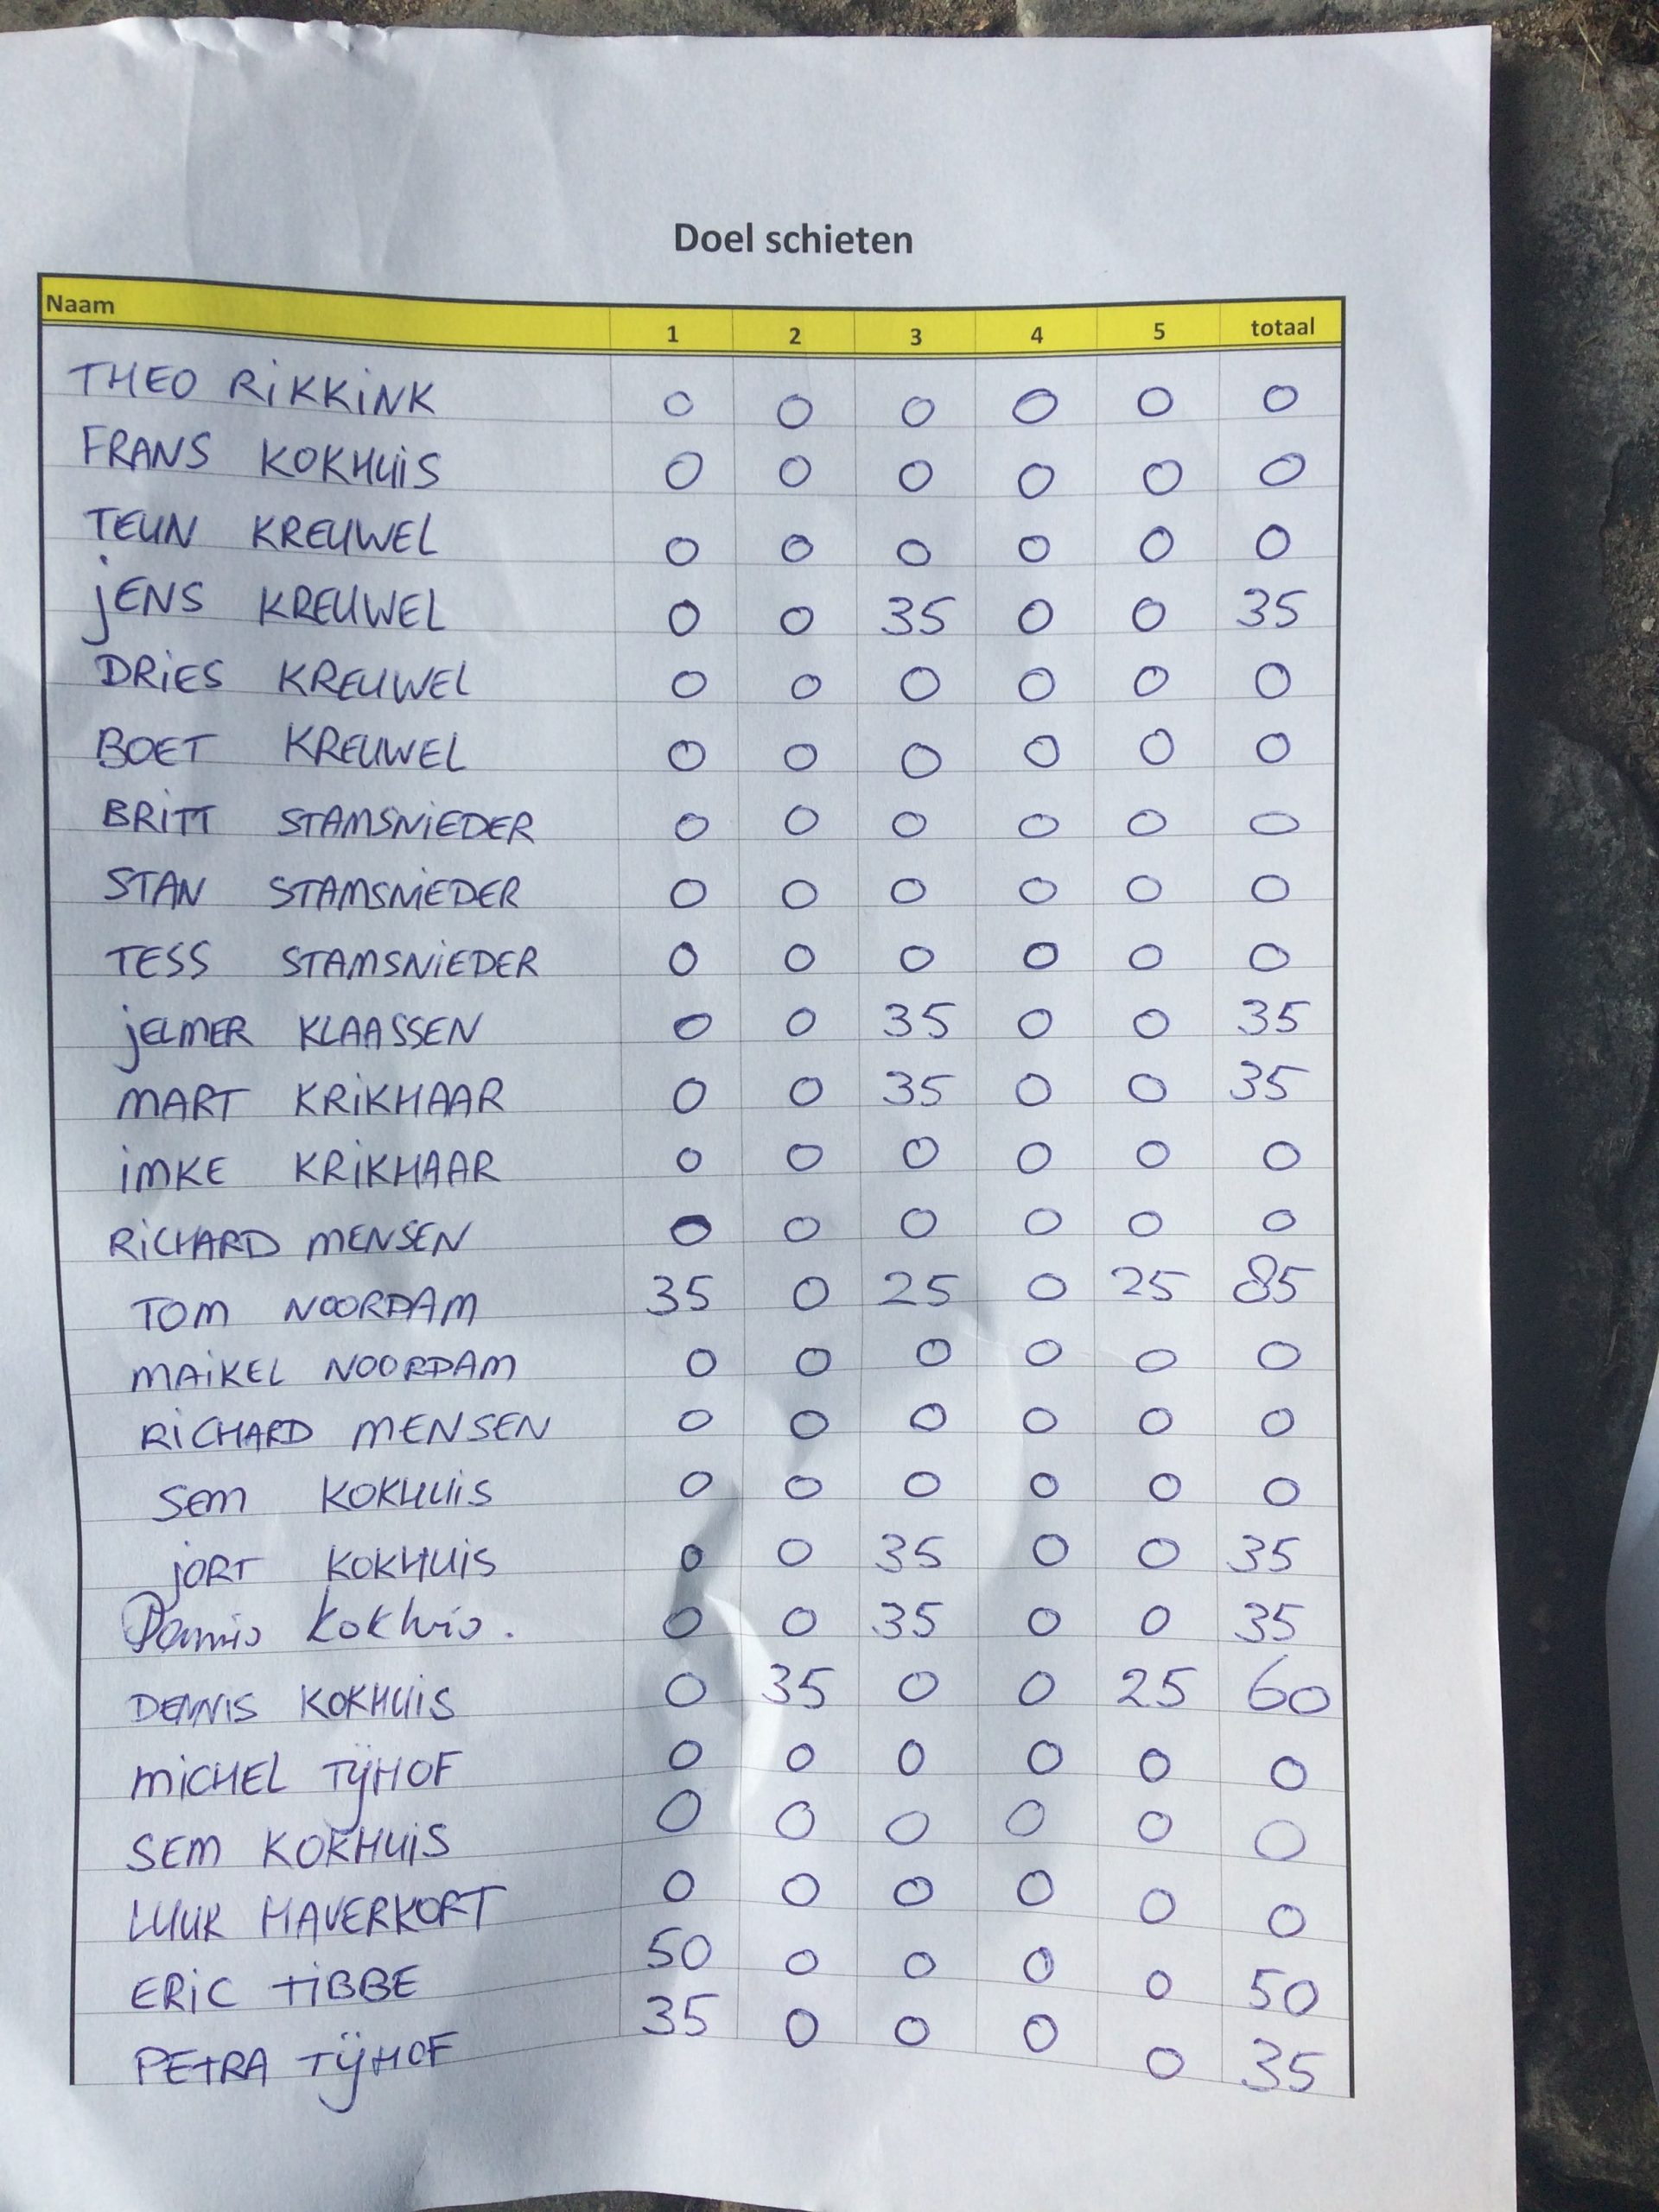 Doel schieten
Naam 1 2 3 4 5 totaal
THEO RiKKiNK 0 0 0 0 0 0
FRANS KOKHUiS 0 0 0 0 0 0
TEUN KREUWEL 0 0 0 0 0 0
jENS KREUWEL 0 0 35 0 0 35
DRiES KREUWEL 0 0 0 0 0 0
BOET KREUWEL 0 0 0 0 0 0
BRiTT STAMSNiEDER 0 0 0 0 0 0
STAN STAMSNiEDER 0 0 0 0 0 0
TESS STAMSNiEDER 0 0 0 0 0 0
jELMER KLAASSEN 0 0 35 0 0 35
MART KRiKHAAR 0 0 35 0 0 35
iMKE KRiKHAAR 0 0 0 0 0 0
RiCHARD MENSEN 0 0 0 0 0 0
TOM NOORDAM 35 0 25 0 25 85
MAiKEL NOORDAM 0 0 0 0 0 0
RiCHARD MENSEN 0 0 0 0 0 0
SEM KOKHUiS 0 0 0 0 0 0
jORT KOKHUiS 0 0 35 0 0 35
Kokhuis. 0 0 35 0 0 35
DENNIS KOKHUiS 0 35 0 0 25 60
MiCHEL TijHOF 0 0 0 0 0 0
SEM KOKHUiS 0 0 0 0 0 0
LUUK HAVERKORT 0 0 0 0 0 0
ERiC TiBBE 50 0 0 0 0 50
PETRA TijHOF 35 0 0 0 0 35